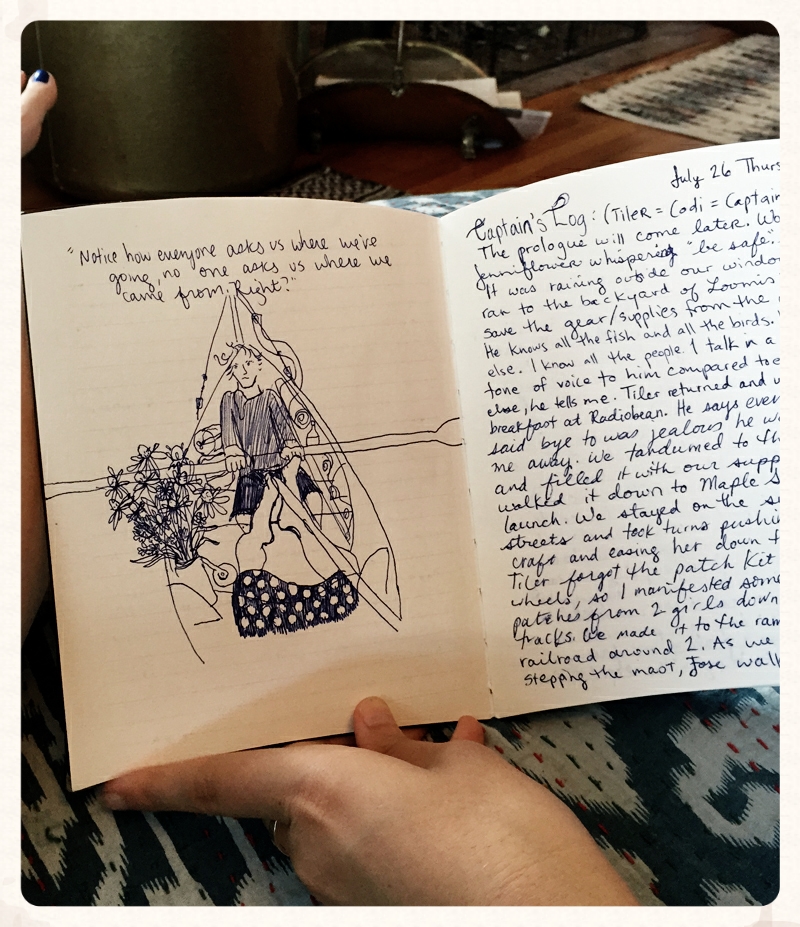 "Notice how everyone asks us where we've
going, no one asks us where we
came from. Right?"
July 26 Thurs
Captain's Log: (Tiler = Codi = Captain
The prologue will come later.
Jenniflower whispering "be safe".
It was raining outside our window
ran to the backyard of Loomis
save the gear/supplies from the
He knows all the fish and all the birds.
else. I know all the people. I talk in a
tone of voice to him compared to e
else, he tells me. Tiler returned and w
breakfast at Radiobean. He says ever
said bye to was jealous he w
me away. We tandumed to th
and filled it with our supp
walked it down to Maple S
launch. We stayed on the s
streets and took turns pushin
craft and easing her down t
Tiler forgot the patch kit
wheels, so I manifested some
patches from 2 girls down
tracks. We made it to the ram
railroad around 2. As we
stepping the mast, Jose walk